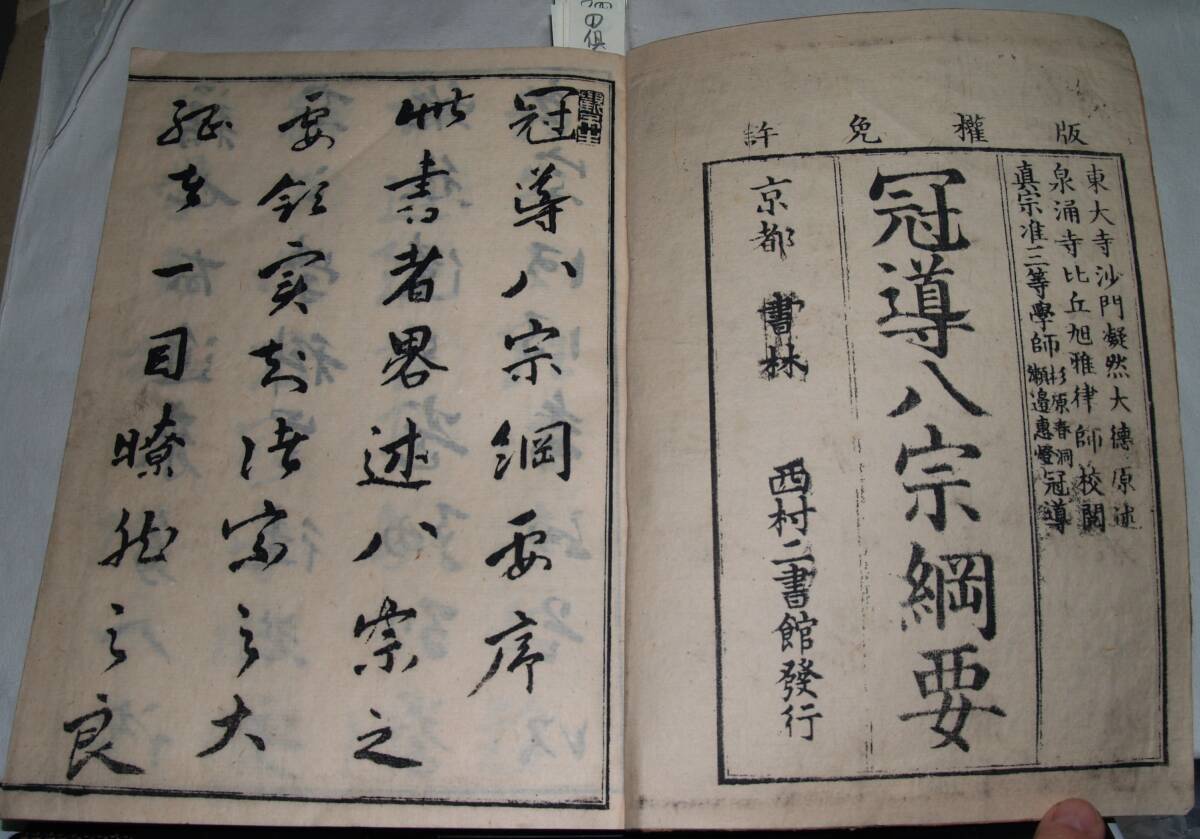 版權免許
東大寺沙門凝然大德原述
泉涌寺比丘旭雅律師校閲
真宗准三等學師杉原春洞瀬邉惠燈冠導
冠導八宗綱要
京都書林西村二書館發行
冠導八宗綱要序
此書者畧述八宗之
要領実知諸宗之大
經在一目瞭然之良